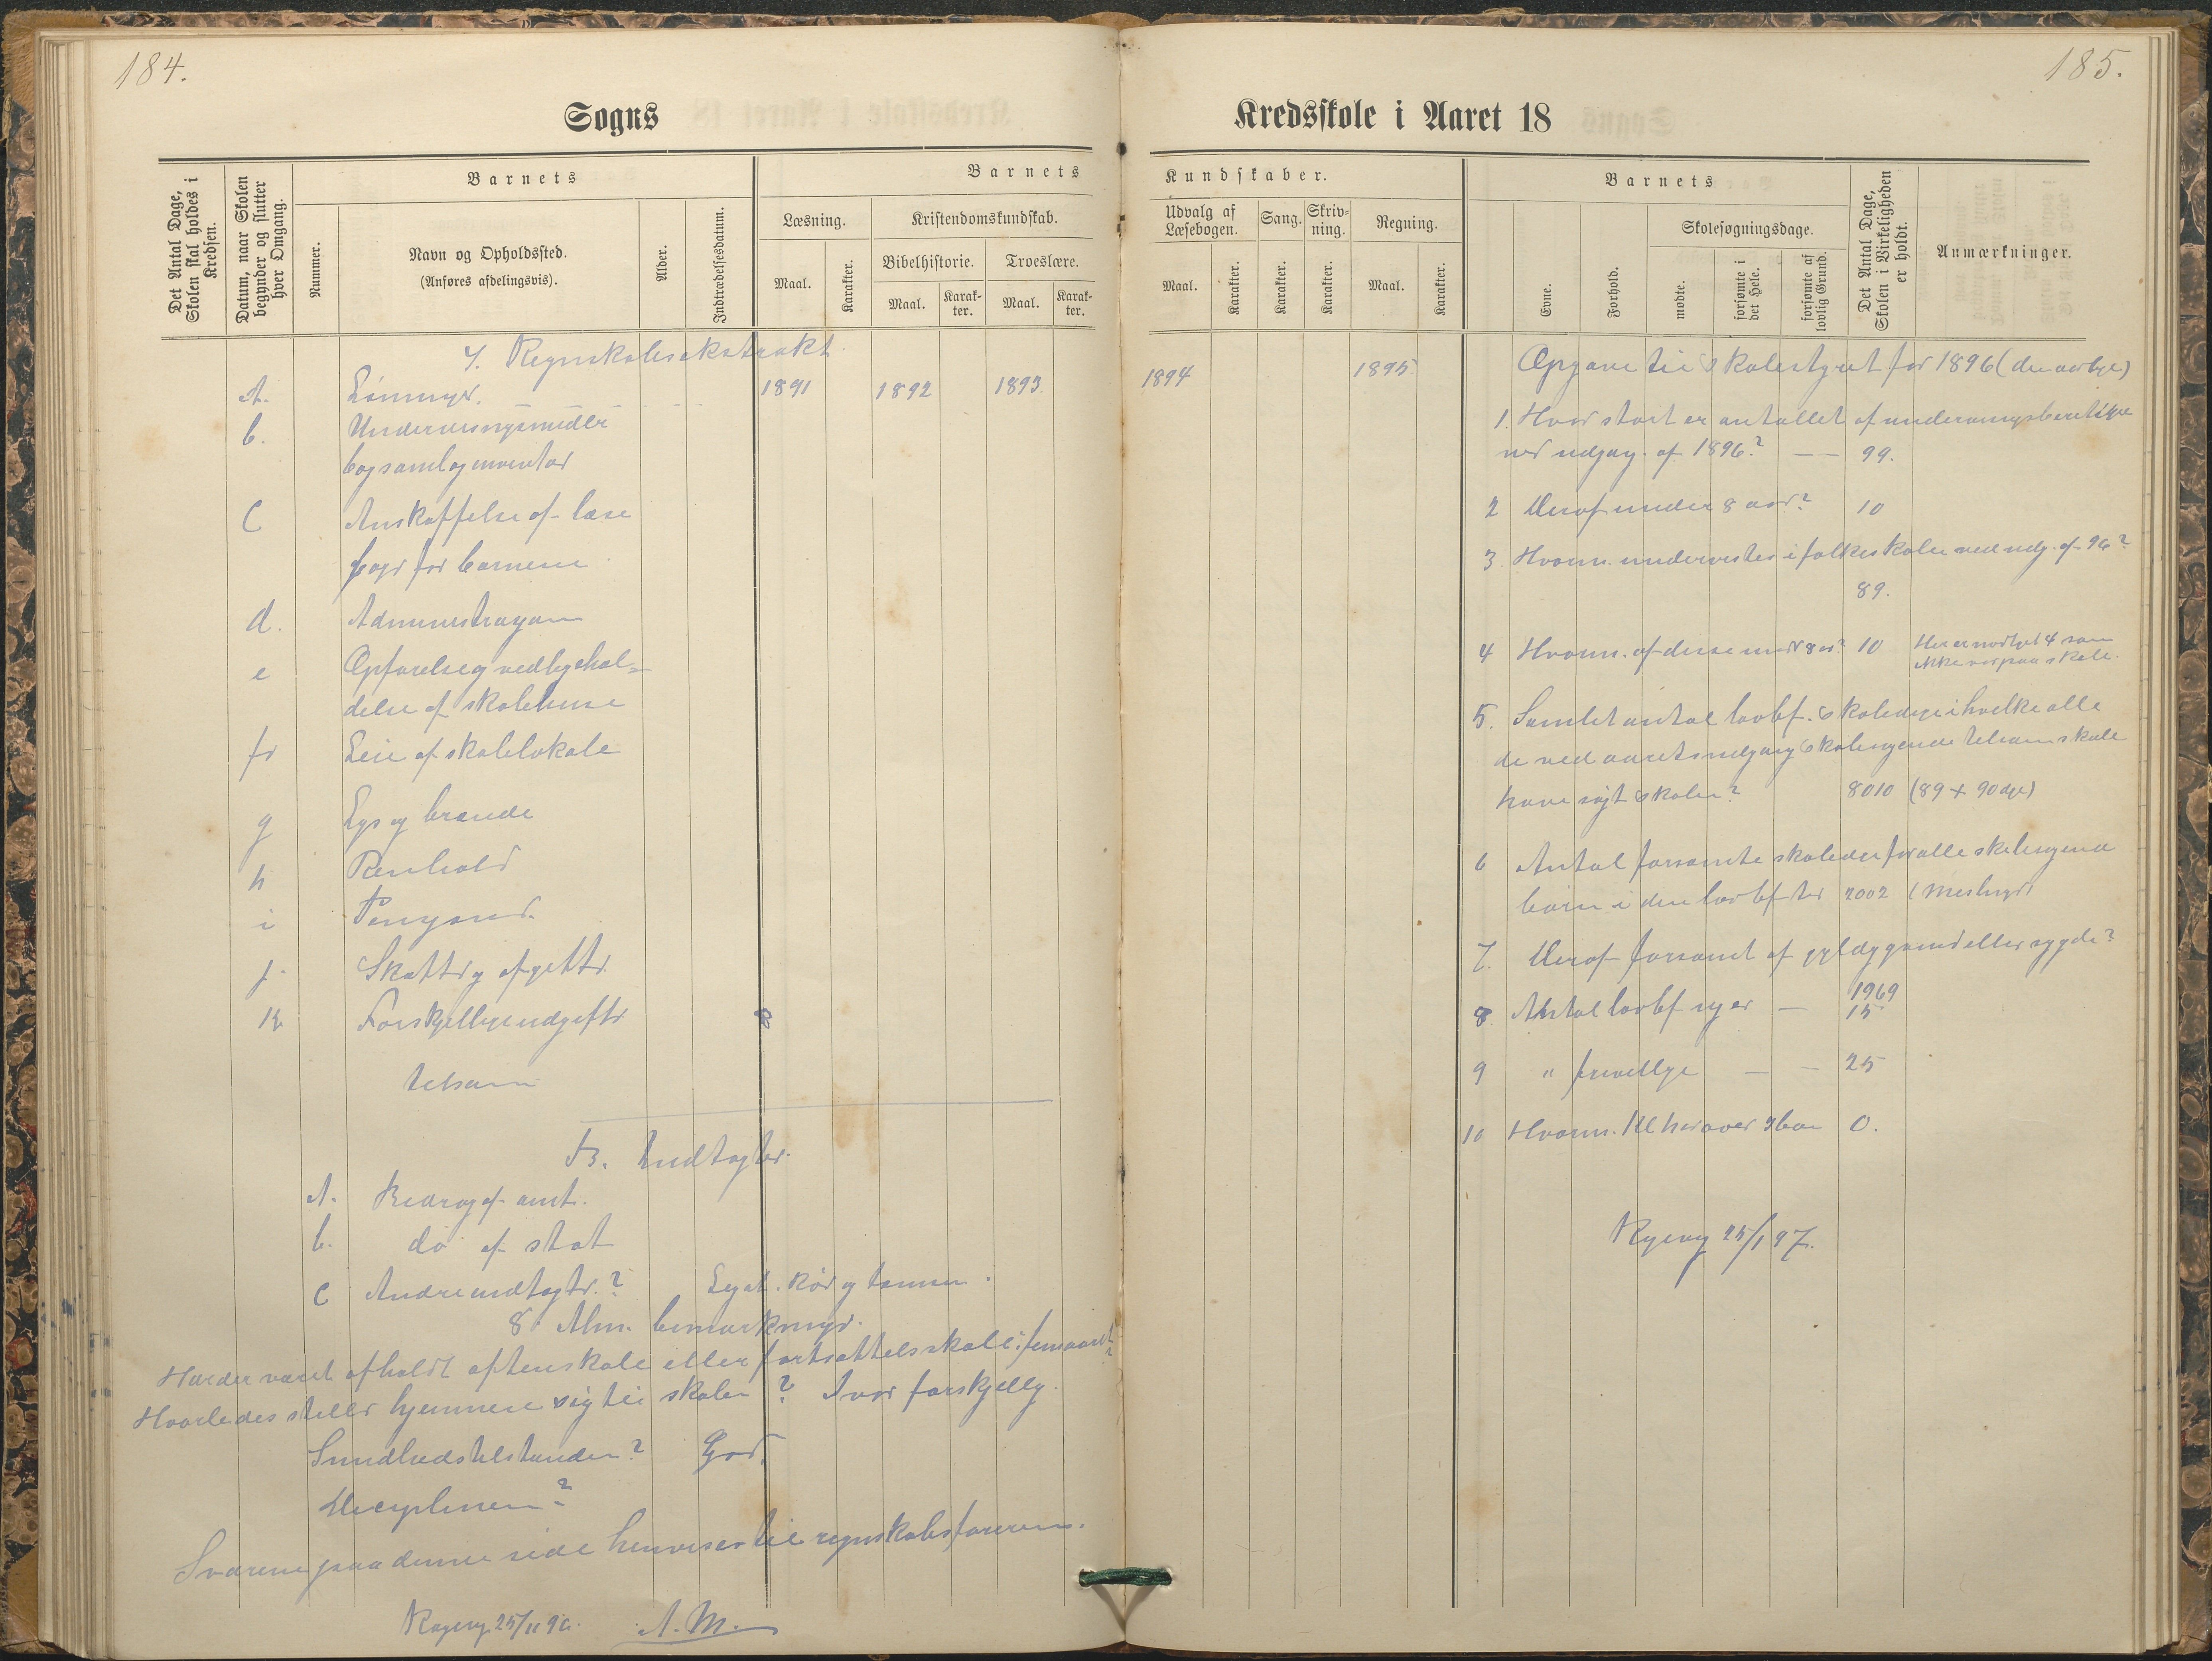 184.
Sogns
Det Antal Dage, Skolen skal holdes i Kredsen.
Datum, naar Skolen begynder og slutter hver Omgang.
Nummer.
Barnets
Navn og Opholdssted.
(Anføres afdelingsvis).
Alder.
Indtrædelsesdatum.
Barnets
Læsning.
Kristendomskundskab.
Maal.
Karakter.
Bibelhistorie.
Troeslære.
Maal.
Karak-ter.
Maal.
Karak-ter.
7. Regnskabsekstrakt.
A. Lønninger. 1891 1892 1893.
b. Undervisningsmidler
bogsaml og inventar
C Anskaffelse af læse
bøger for børnene
d. Administrasjon
e Opførelse og vedligehol=
delse af skolehuse
f Leie af skolelokale
g Lys og brænde
h Renhold
i
j. Skatter og afgifter
k Forskjellige udgifter
tilsam
B. Indtægter.
A. Bidrag af amt.
b. do af stat
C Andre indtægter? Legat.
8 Alm. bemærkninger.
Har der været afholdt aftenskole eller fortsættelsesskole i femaaret?
Hvorledes stiller hjemmene sig til skolen? Svar forskjellig.
Sundhedstilstanden? God.
Decyplinen?
Svarene paa denne side henviser til regnskabsføreren.
25/11 96. A. M.
185.
Kredsskole i Aaret 18
Kundskaber.
Udvalg af Læsebogen.
Sang.
Skriv-ning.
Regning.
Maal.
Karakter.
Karakter.
Karakter.
Maal.
Karakter.
Barnets
Evne.
Forhold.
Skolesøgningsdage.
mødte.
forsømte i det Hele.
forsømte af lovlig Grund.
Det Antal Dage, Skolen i Virkeligheden er holdt.
Anmærkninger.
1894 1895.
Opgave til Skolestyret for 1896
1. Hvor stort er antallet af undervisningsberettige
ved udgang. af 1896? — — 99.
2 Deraf under 8 aar? 10
3. Hvorm. undervistes i folkeskolen ved udg. af 96?
89.
4 Hvorm. af disse under 8 aar? 10 4 som
ikke var paa skole.
5. Samlet antal lovbf. Skoledage i hvilke alle
de ved aarets udgang Skolesøgende tilsam skulle
have søgt Skolen? 8010 (89 + 90 dge)
6 Antal forsømte skoledge for alle skolesøgend
børn i den lovbf tid 2002
7. Deraf forsømt af gyldig grund eller sygde?
1969
8. Antal lovbf uger — 15
9 " frivillige — — 25
10 Hvorm. 0.
25/1 97.